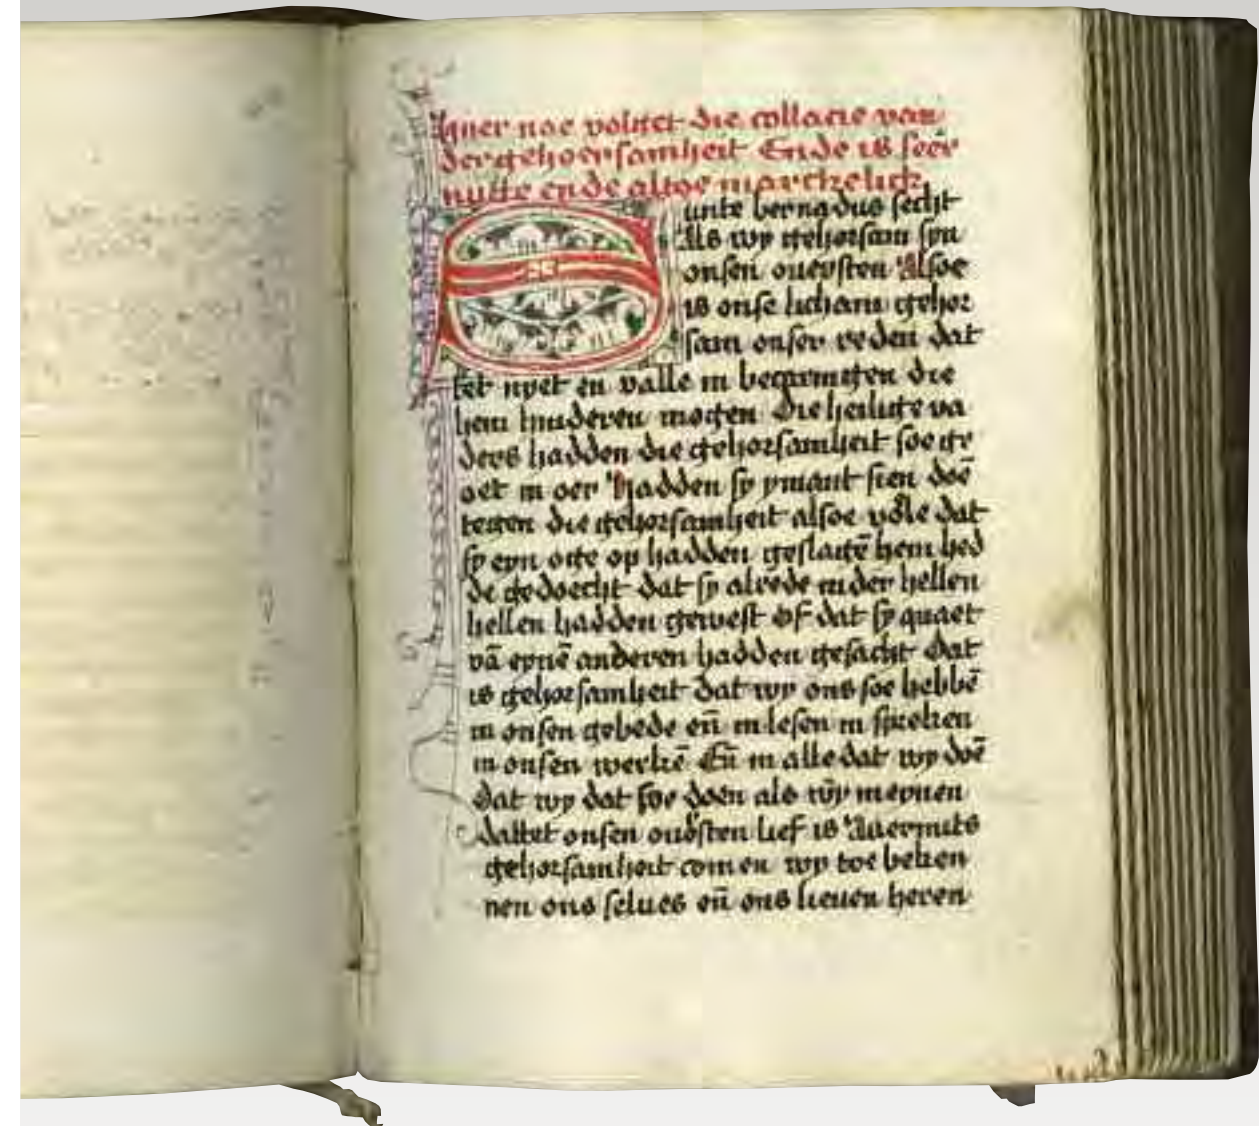 Hiier nae volget die collacie van
der gehoersamheit Ende is seer
nutte ende alsoe marckelick
Sunte bernadus secht
Als wy gehorsam syn
onsen ouersten Alsoe
is onse licham gehor
sam onser reden dat
tet nyet en valle in begeringen die
hem hinderen mogen Die heilige va
ders hadden die gehorsamheit soe gr
oet in oer Hadden sy ymant sien doē
tegen die gehorsamheit alsoe vole dat
sy eyn oge op hadden geslagē hem hed
de gedoecht dat sy alrede in der hellen
hellen hadden gewest Of dat sy quaet
vā eynē anderen hadden gesacht Dat
is gehorsamheit Dat wy ons soe hebbē
in onsen gebede eñ in lesen in spreken
in onsen werkē Eñ in alle dat wy doē
Dat wy dat soe doen als wy meynen
dattet onsen ouersten lief is Auermits
gehorsamheit comen wy toe beken
nen ons selues eñ ons lieuen heren